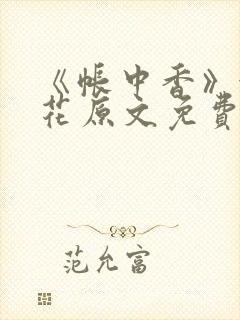 《帐中香》
花原文免费
范允富